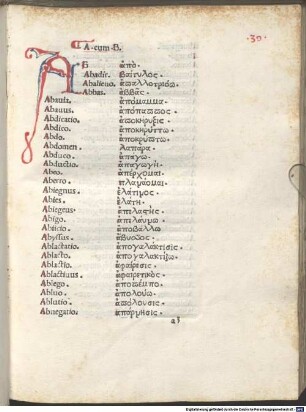 ·30·
A·cum·B·
AB. ἀπὸ·
Abadir. βαίτυλος·
Abalieno. ἀπαλλοτριόω·
Abbas. ἀββᾶς·
Abauia. ἀπόμαμμα·
Abauus. ἀπόπαππος·
Abdicatio. ἀποκήρυξις·
Abdico.
Abdo. ἀποκρύπτω·
Abdomen. λαπάρα·
Abduco. ἀπάγω·
Abductio. ἀπαγωγή·
Abeo. ἀπέρχομαι·
Aberro. πλανάομαι·
Abiegnus. ἐλάτινος·
Abies. ἐλάτη·
Abigeus. ἀπελάτης·
Abigo. ἀπελαύνω·
Abiicio. ἀποβάλλω·
Abyssus. ἄβυσσος·
Ablactatio. ἀπογαλάκτισις·
Ablacto. ἀπογαλακτίζω·
Ablatio. ἀφαίρεσις·
Ablatiuus. ἀφαιρετικός·
Ablego. ἀποπέμπω·
Abluo. ἀπολούω·
Ablutio. ἀπόλουσις·
Abnegatio. ἀπάρνησις·